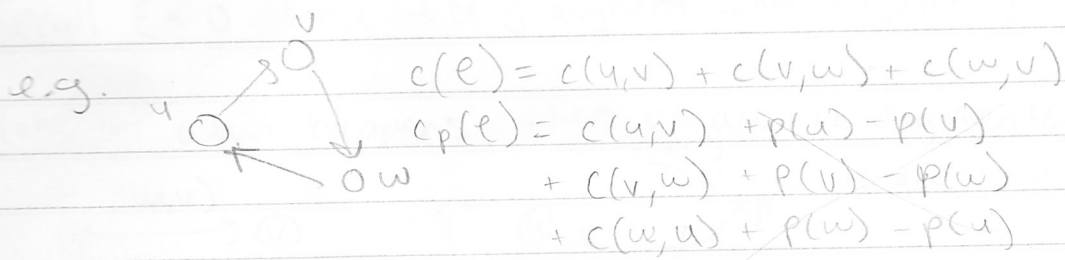 v
e.g. c(e) = c(u,v) + c(v,w) + c(w,v)
u cp(e) = c(u,v) + p(u) - p(v)
w + c(v,w) + p(v) - p(w)
+ c(w,u) + p(w) - p(u)